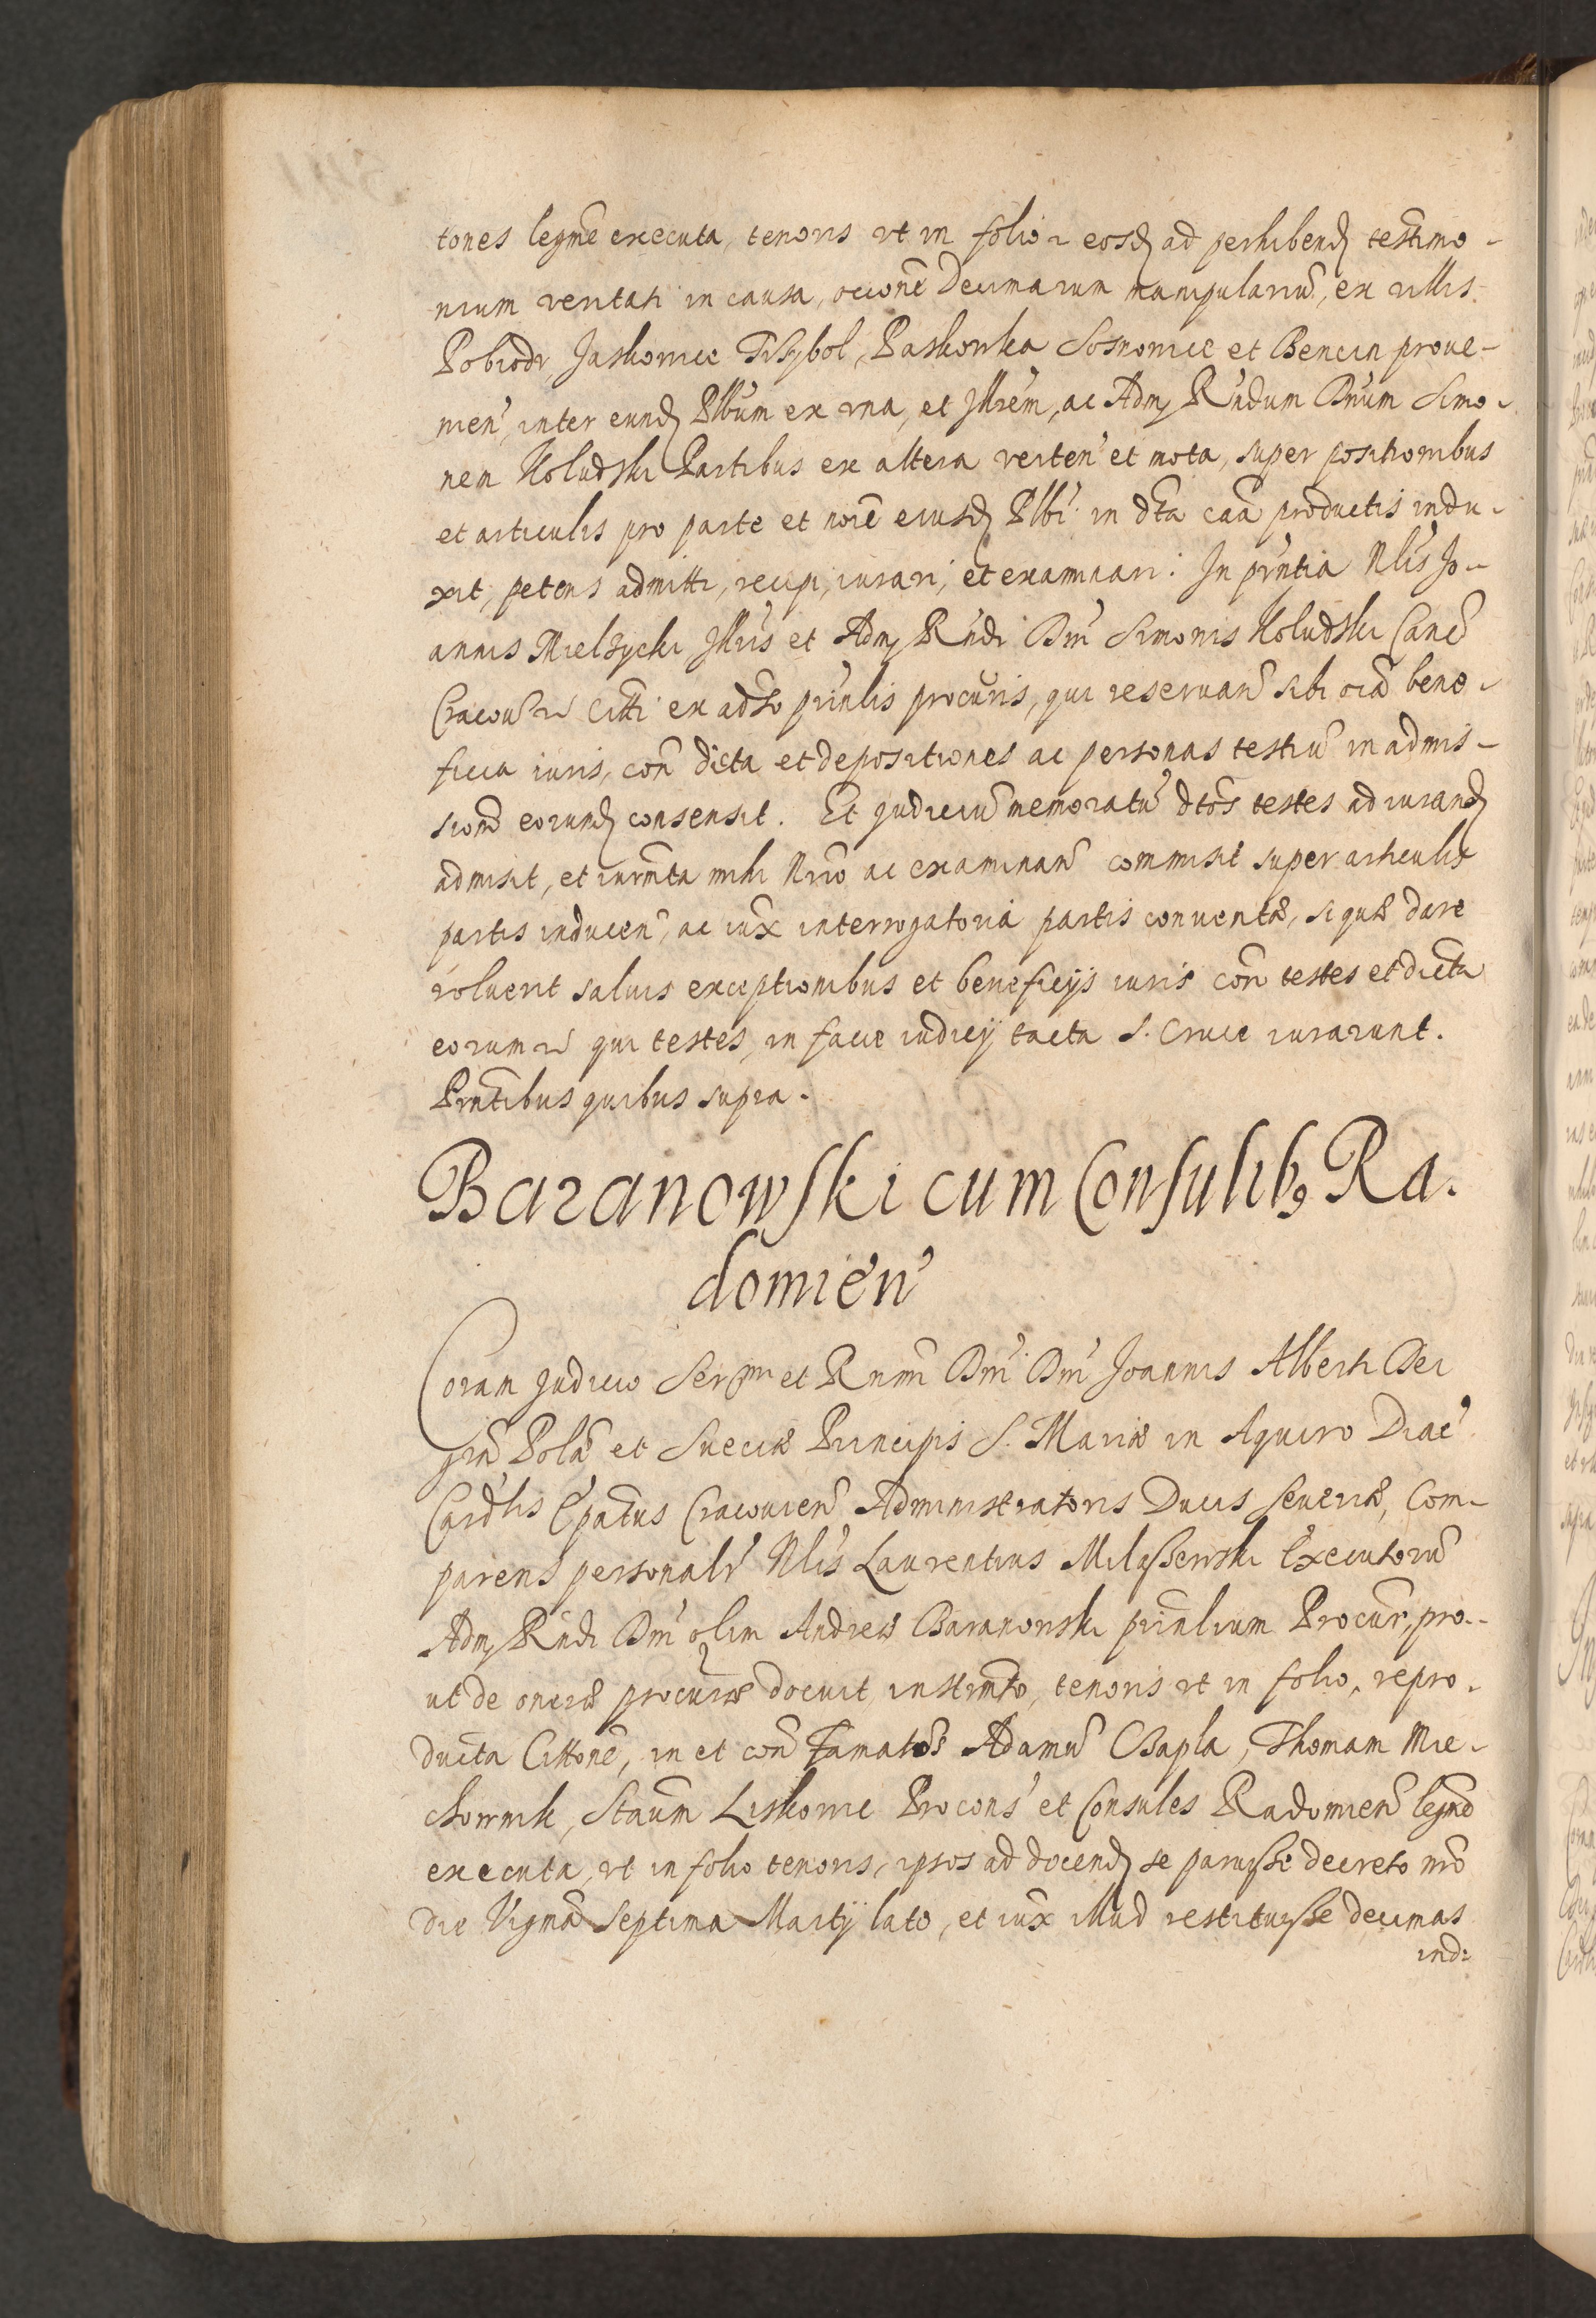 tones legme executa, tenoris vt in folio eosd ad perhibend testimo-
nium veritati in causa, occone Decimarum manipulariu, ex villis
Pobiodr, Jaskowice Trzybol, Paskowka Sosnowice et Bencin proue-
nien, inter eund Plbum ex vna, et Jllrem, ac Adm Rndum Dnum Simo-
nem Koludzki Partibus ex altera verten et mota, super positionibus
et articulis pro parte et noie eiusd Plbi in dta caa productis indu-
xit, petens admitti, recipi, iurari, et examinari. In pntia Nlis Jo-
annis Mielzycki Jllris et Adm Rndi Dni Simonis Koludzki Canci
Cracouien citti ex aduso prinlis procuris, qui reseruan sibi oia bene-
ficia iuris, con dicta et depositiones ac personas testiu in admis-
sione eorund consensit. Et Judiciu memoratu dtos testes ad iurand
admisit, et iurmta mihi Nrio ac examinan commisit super articulis
partis inducen, ac iux interrogatoria partis conuentæ, si quæ dare
voluerit saluis exceptionibus et beneficijs iuris con testes et dicta
eorum qui testes, in facie iudicij tacta S. Cruce iurarunt.
Prntibus quibus supra.
Baranowski cum Consulib9 Ra.
domien
Coram Judicio Sermi et Rnmi Dni Dni Joannis Alberti Dei
gra Polæ et Sueciæ Principis S. Mariæ in Aquiro Diac
Cardlis Epatus Cracouien Administratoris Ducis Seueriæ, Com-
parens personalr Nlis Laurentius Milaszewski Executoru
Adm Rndi Dni olim Andreæ Baranowski prinlium Procur, pro-
ut de onere procuræ docuit instrmto, tenoris vt in folio, repro-
ducta Cittone, in et con Famatos Adamu Bapla, Thomam Mie-
chownik, Staum Liskowic Procons et Consules Radomien legme
executa, vt in folio tenoris, ipsos ad docend se paruisse decreto nro
die Vigma Septima Martij lato, et iux illud restituisse decimas
ind: